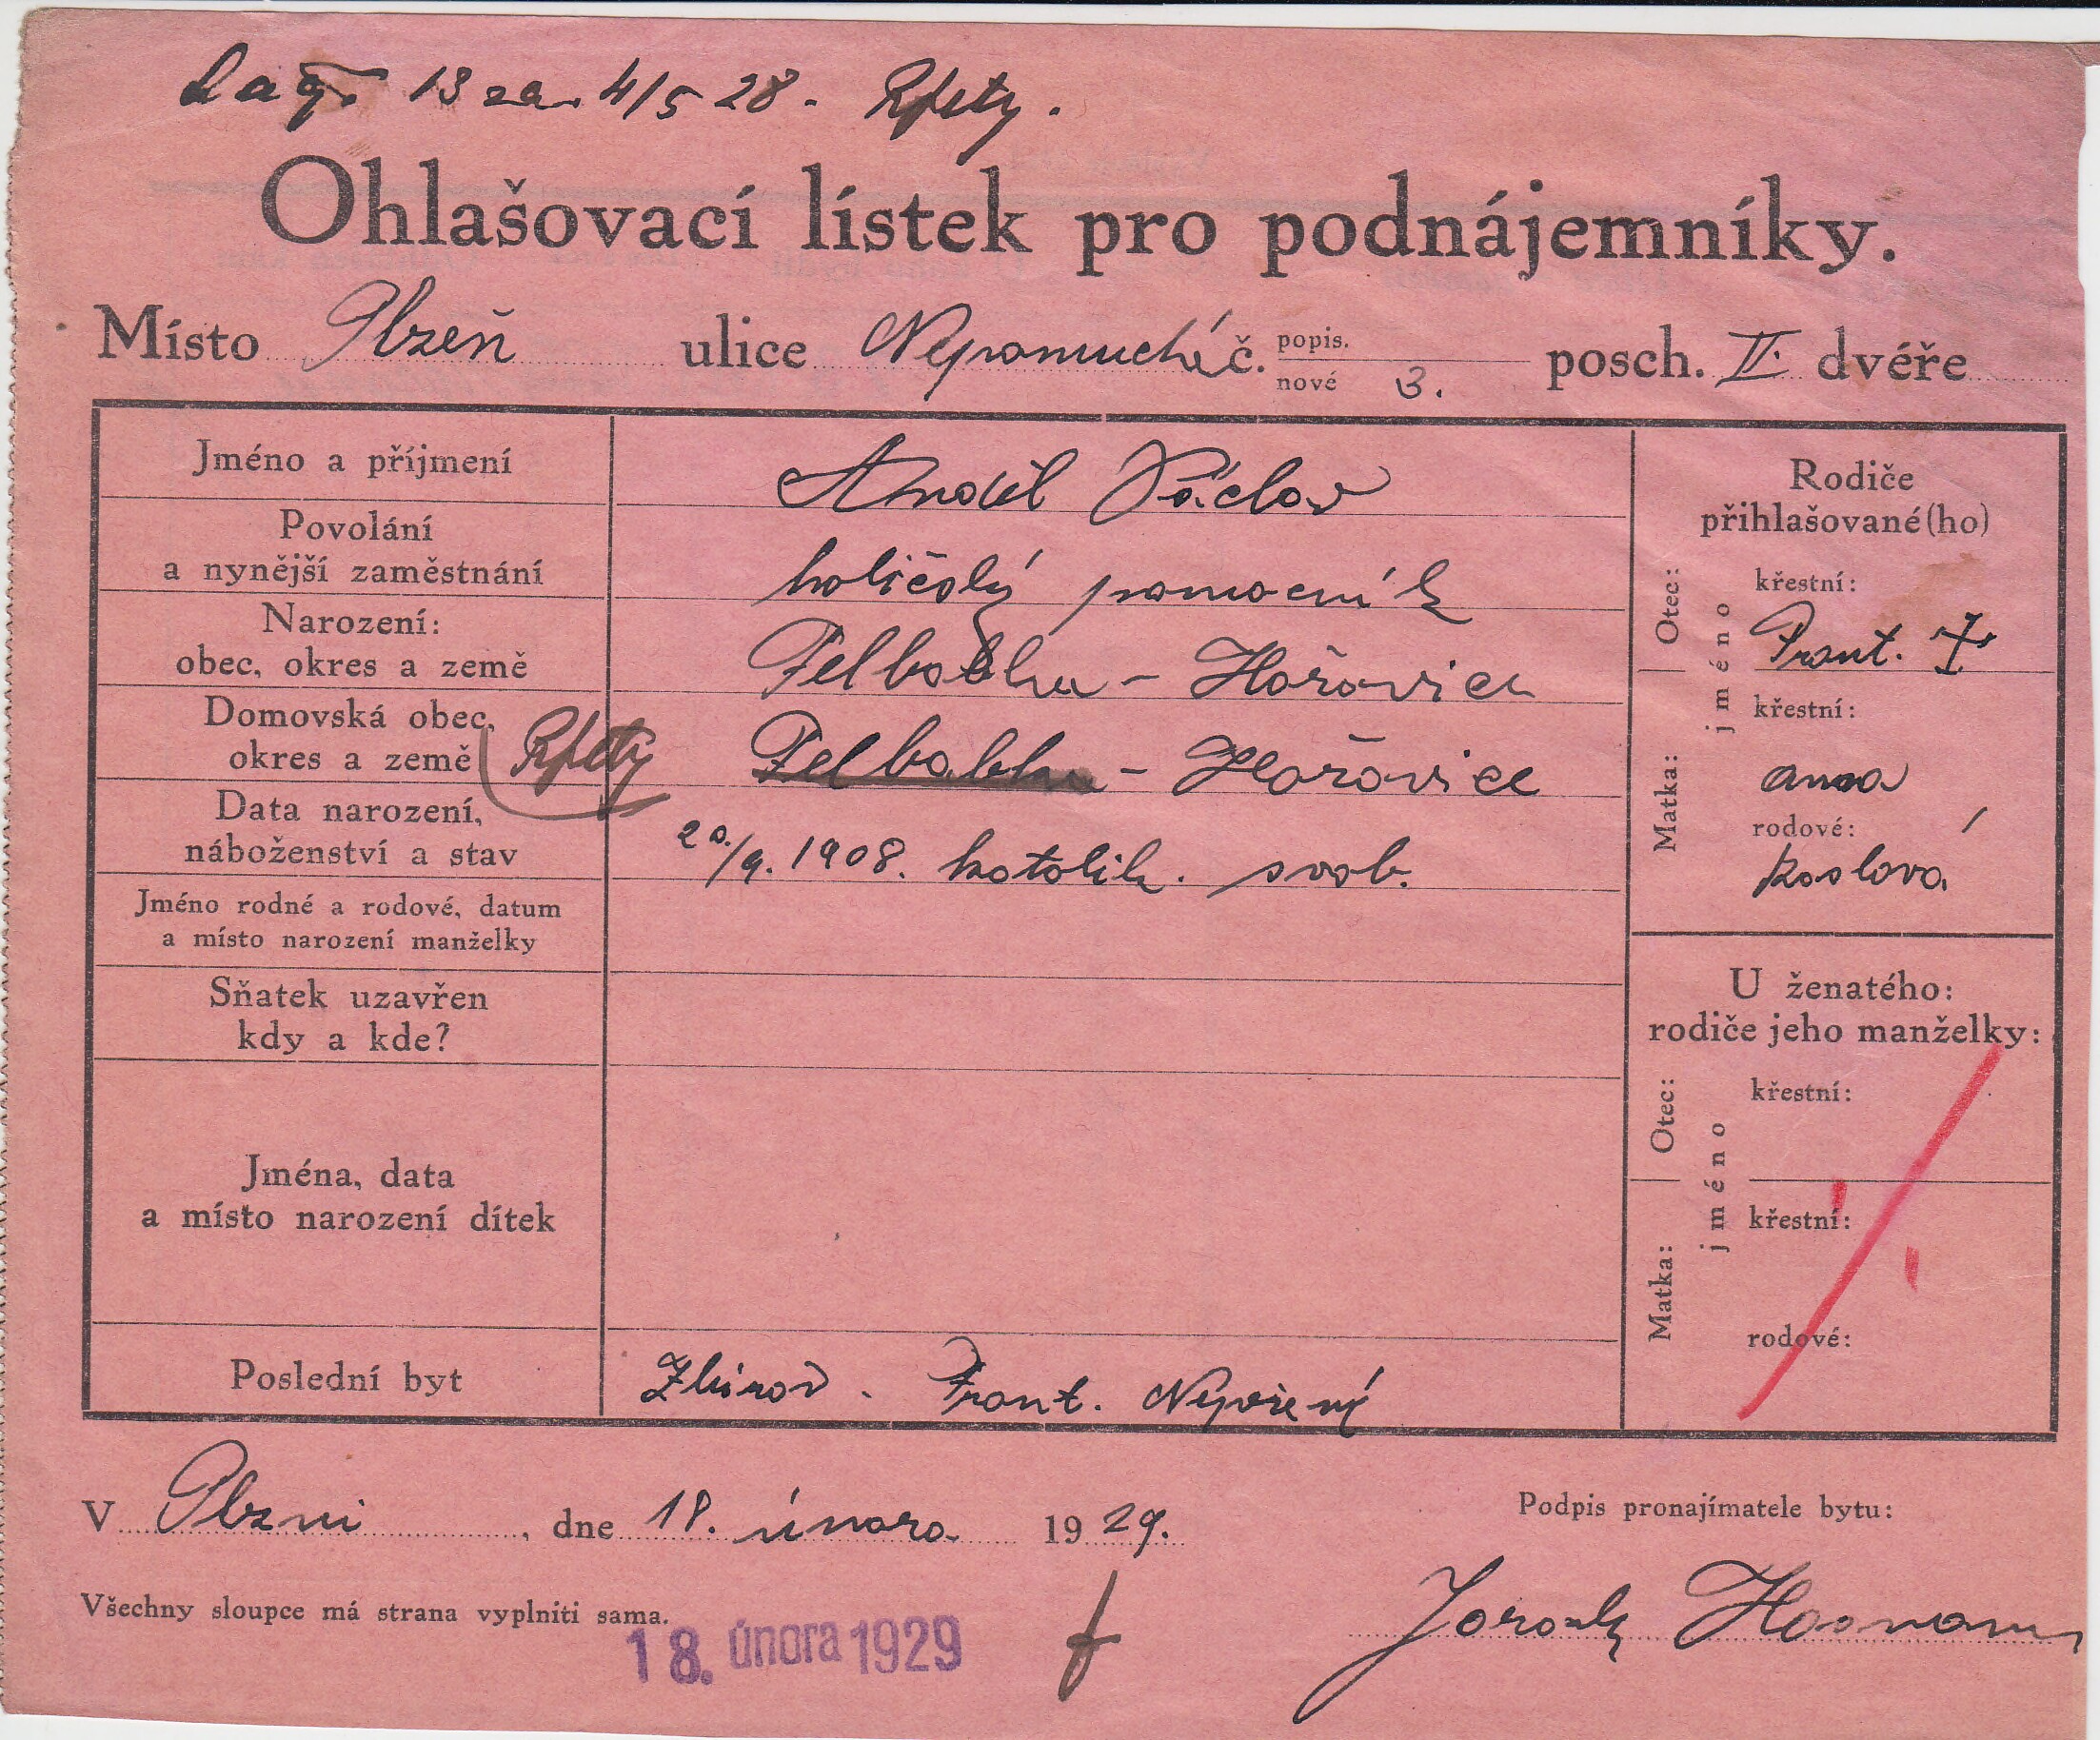 13 4/5 28. Rpety.
Ohlašovací lístek pro podnájemníky.
Místo Plzeň ulice Nepomucká č. popis. nové 3. posch. II. dvéře
Jméno a příjmení Anděl Václav
Povolání a nynější zaměstnání holičský pomocník
Narození: obec, okres a země Felbabka - Hořovice
Domovská obec, okres a země Rpety Felbabka - Hořovice
Data narození, náboženství a stav 20./9. 1908. katolik. svob.
Jméno rodné a rodové, datum a místo narození manželky
Sňatek uzavřen kdy a kde?
Jména, data a místo narození dítek
Poslední byt Zbirov. Frant.
Rodiče
přihlašované(ho)
Otec:
jméno
křestní:
Frant. †
Matka:
křestní:
Anna
rodové:
U ženatého:
rodiče jeho manželky:
Otec:
jméno
křestní:
Matka:
křestní:
rodové:
V Plzni, dne 18. února 1929.
Podpis pronajímatele bytu:
Všechny sloupce má strana vyplniti sama.
18. února 1929